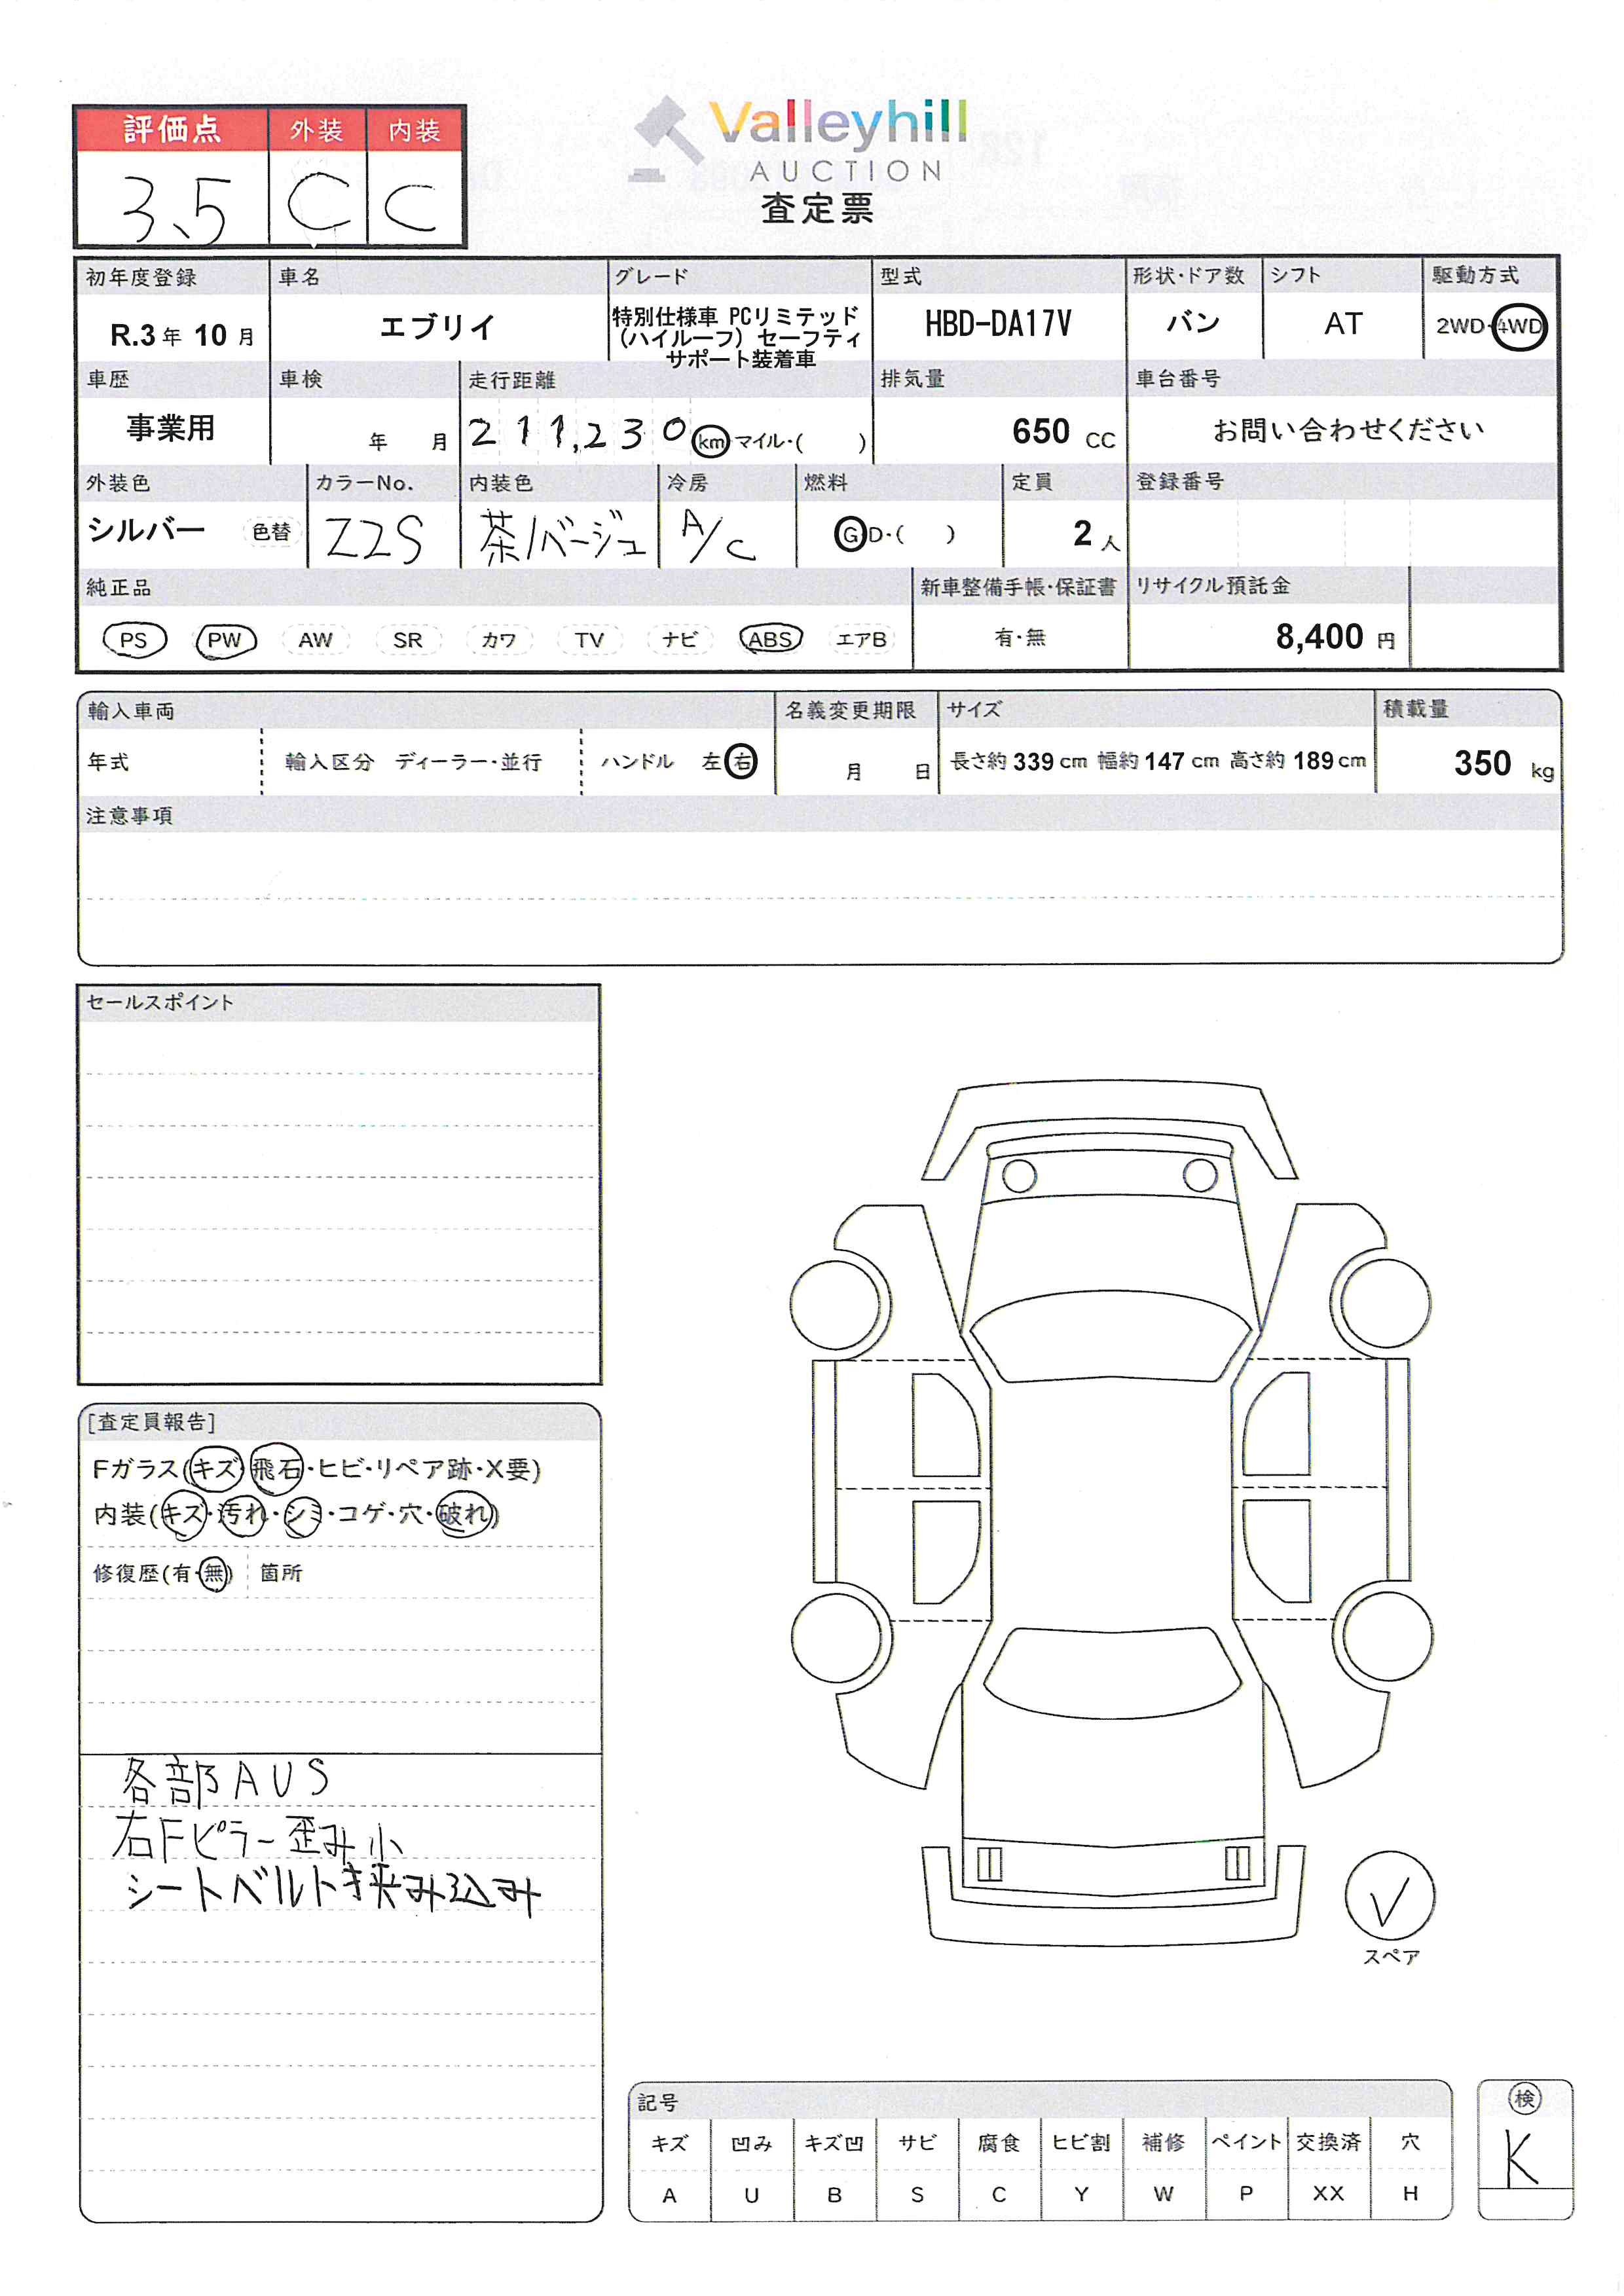 評価点 外装 内装
3.5 C C
Valleyhill
AUCTION
査定票
初年度登録 車名 グレード 型式 形状・ドア数 シフト 駆動方式
R.3年 10月 エブリイ 特別仕様車 PCリミテッド（ハイルーフ）セーフティサポート装着車 HBD-DA17V バン AT 2WD・4WD
車歴 車検 走行距離 排気量 車台番号
事業用 年 月 211,230 km マイル・( ) 650 CC お問い合わせください
外装色 カラーNo. 内装色 冷房 燃料 定員 登録番号
シルバー 色替 Z2S 茶/ベージュ A/C G D・( ) 2人
純正品 新車整備手帳・保証書 リサイクル預託金
PS PW AW SR カワ TV ナビ ABS エアB 有・無 8,400 円
輸入車両 名義変更期限 サイズ 積載量
年式 輸入区分 ディーラー・並行 ハンドル 左 右 月 日 長さ約 339 cm 幅約 147 cm 高さ約 189 cm 350 kg
注意事項
セールスポイント
[査定員報告]
Fガラス(キズ・飛石・ヒビ・リペア跡・X要)
内装(キズ・汚れ・シミ・コゲ・穴・破れ)
修復歴(有・無) 箇所
各部AUS
右Fピラー歪み小
シートベルト挟み込み
スペア
記号
キズ 凹み キズ凹 サビ 腐食 ヒビ割 補修 ペイント 交換済 穴
A U B S C Y W P XX H
検
K